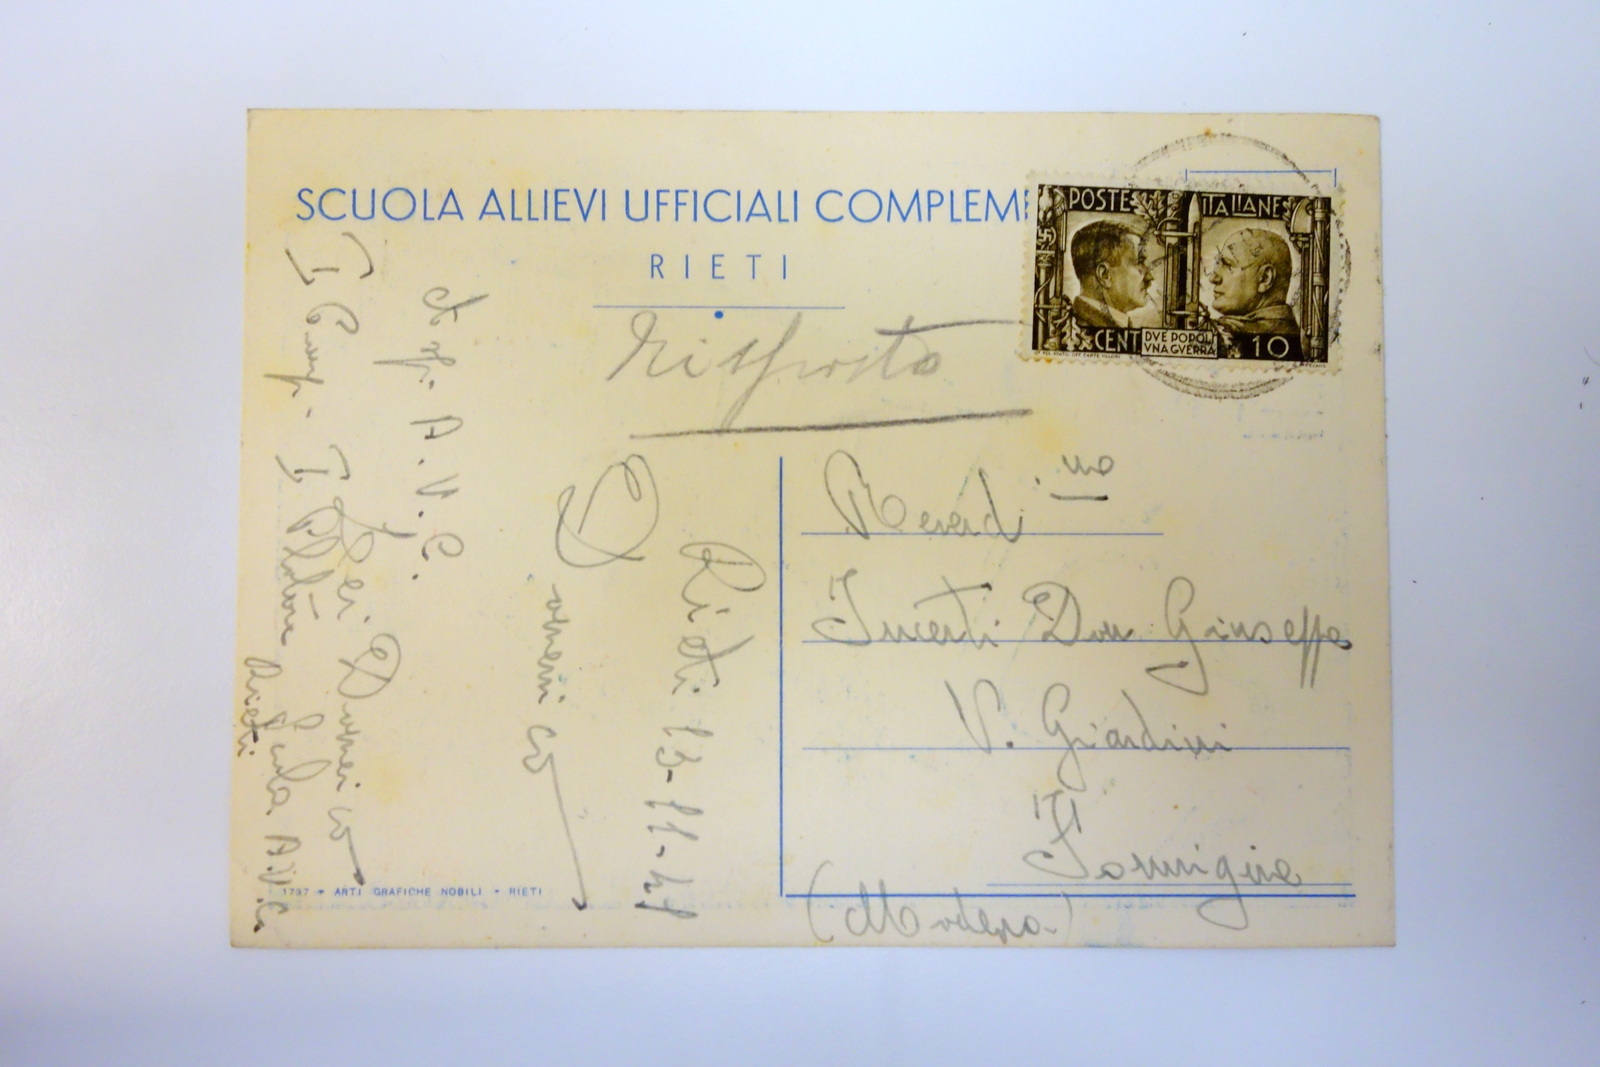 SCUOLA ALLIEVI UFFICIALI COMPLEME
RIETI
POSTE ITALIANE
CENT 10
DVE POPOLI
VNA GVERRA
risposto
Reverd.mo
Incerti Don Giuseppe
V. Giardini
Formigine
(Modena)
Rieti 13-11-41
Domenico
A.V.C.
Domenico
I Comp. I Plotone Scuola A.V.C.
Rieti
1737 + ARTI GRAFICHE NOBILI - RIETI